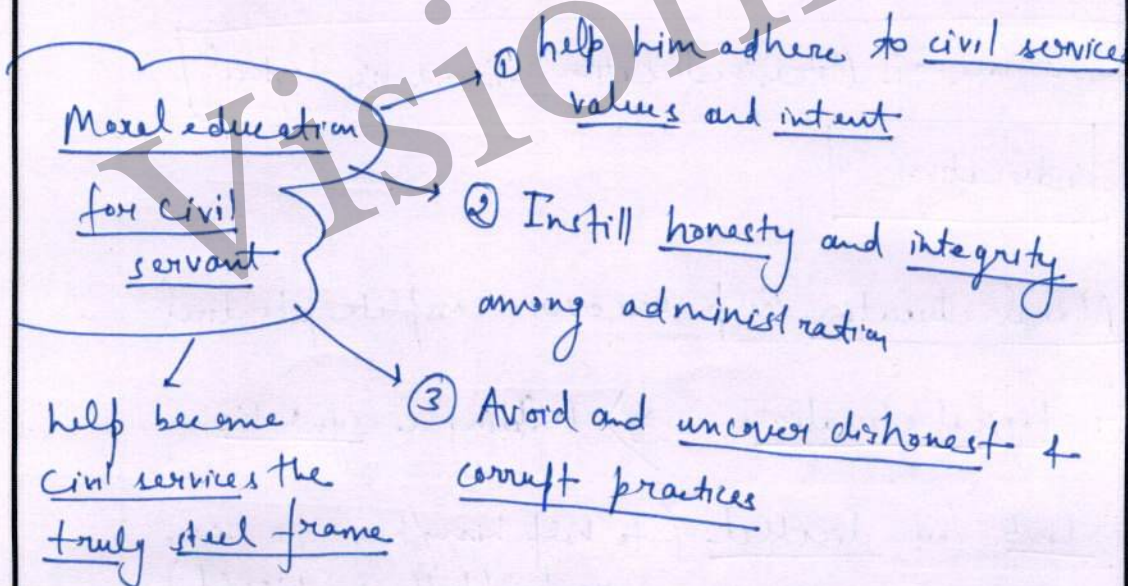 Moral education
for civil
servant
① help him adhere to civil services
values and intent
② Instill honesty and integrity
among administration
③ Avoid and uncover dishonest &
corrupt practices
help become
civil services the
truly steel frame
Vision